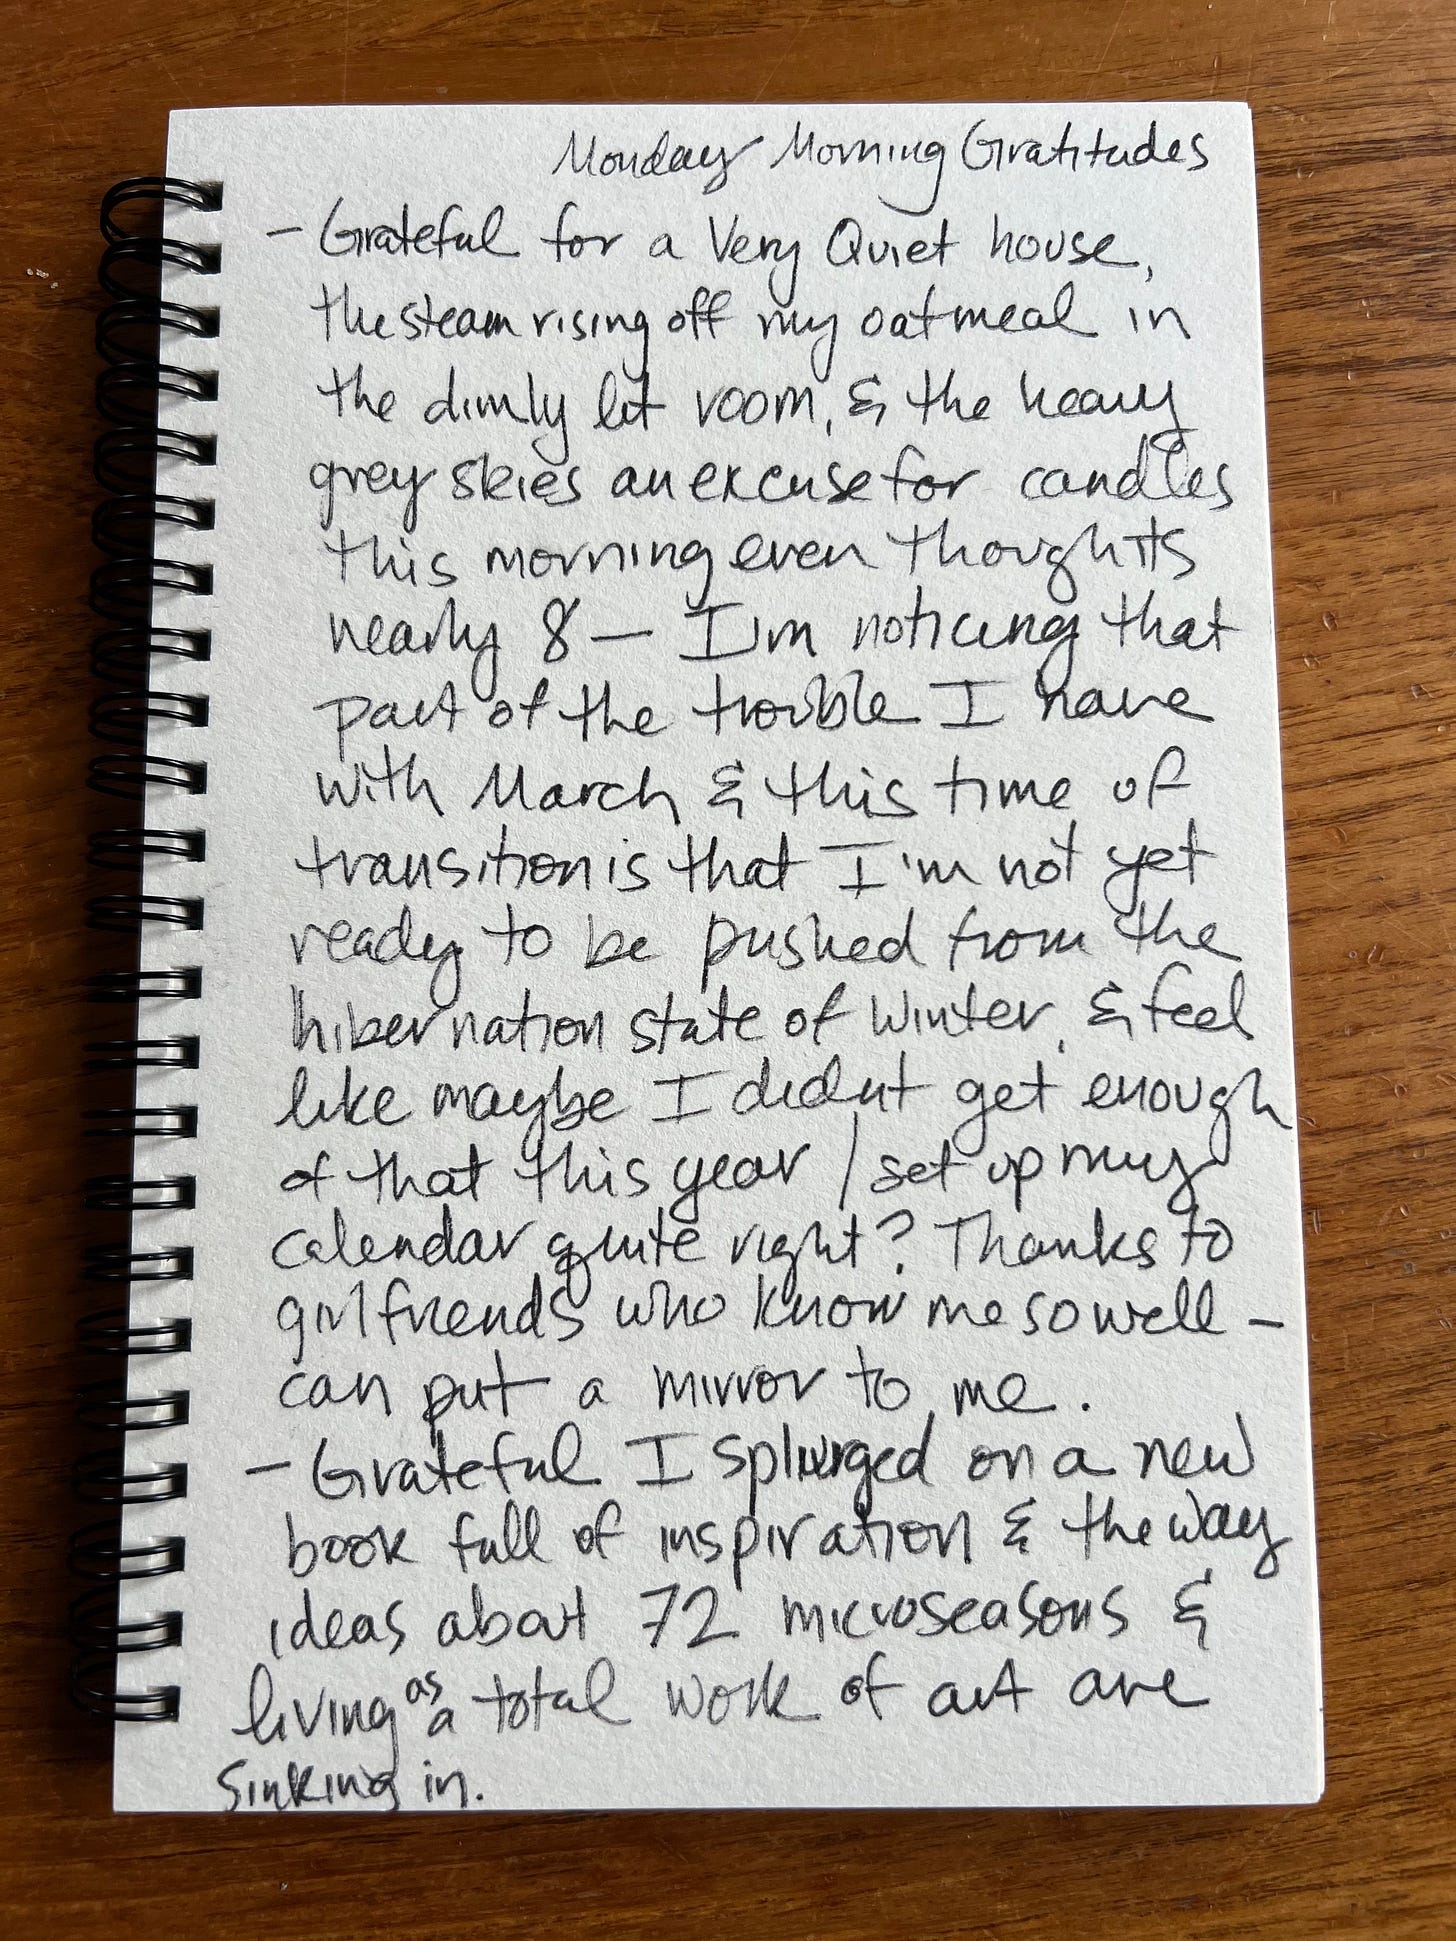 Monday Morning Gratitudes
- Grateful for a Very Quiet house,
the steam rising off my oatmeal in
the dimly lit room, & the heavy
grey skies an excuse for candles
this morning even though its
nearly 8 — I'm noticing that
part of the trouble I have
with March & this time of
transition is that I'm not yet
ready to be pushed from the
hibernation state of Winter, & feel
like maybe I didn't get enough
of that this year / set up my
calendar quite right? Thanks to
girlfriends who know me so well -
can put a mirror to me.
- Grateful I splurged on a new
book full of inspiration & the way
ideas about 72 microseasons &
living as a total work of art are
sinking in.